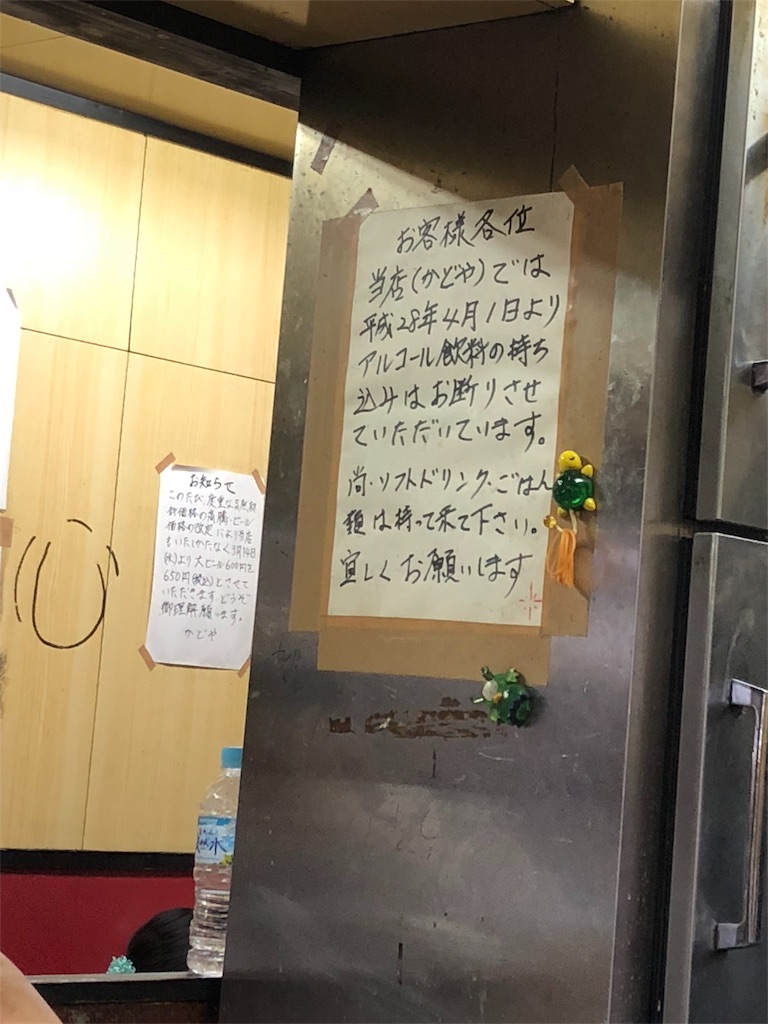 お客様各位
当店(かどや)では
平成28年4月1日より
アルコール飲料の持ち
込みはお断りさせ
ていただいています。
尚・ソフトドリンク・ごはん
類は持って来て下さい。
宜しくお願いします
お知らせ
このたび、度重なる原材
料価格の高騰・ビール
価格の改定により当店
もいたしかたなく3月14日
(火)より大ビール600円を
650円(税込)とさせて
いただきます。どうぞ
御理解願います。
かどや
天然水